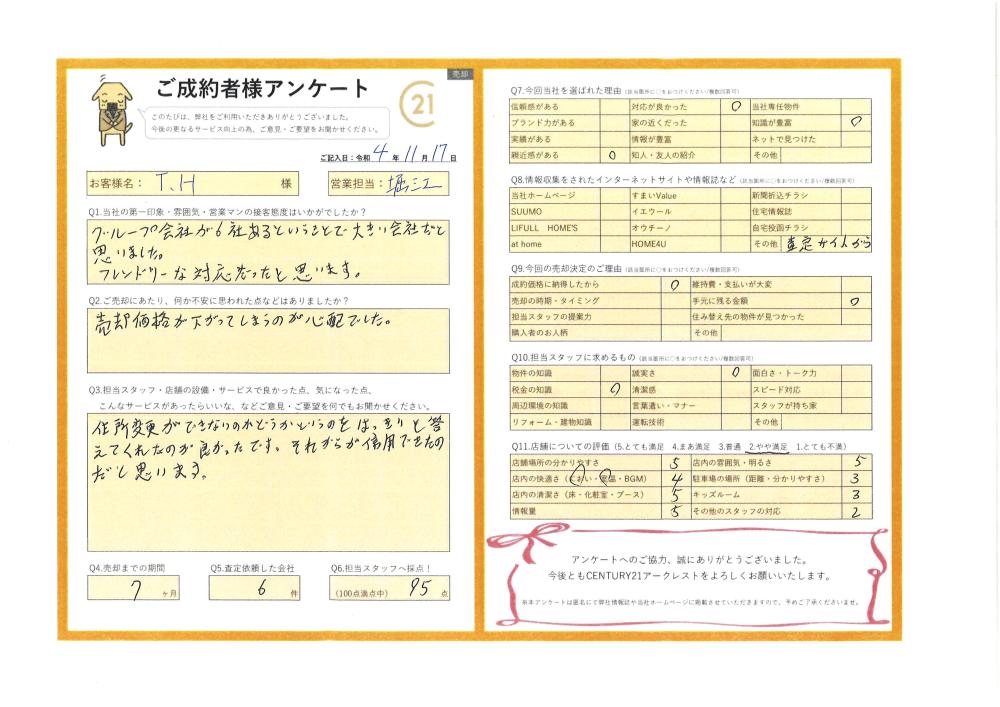 売却
ご成約者様アンケート
21
このたびは、弊社をご利用いただきありがとうございました。
今後の更なるサービス向上の為、ご意見・ご要望をお聞かせください。
ご記入日：令和 4 年 11 月 17 日
お客様名： T.H 様
営業担当： 堀江
Q1.当社の第一印象・雰囲気・営業マンの接客態度はいかがでしたか？
グループ会社が6社あるということで大きい会社だと
思いました。
フレンドリーな対応だったと思います。
Q2.ご売却にあたり、何か不安に思われた点などはありましたか？
売却価格が下がってしまうのが心配でした。
Q3.担当スタッフ・店舗の設備・サービスで良かった点、気になった点、
こんなサービスがあったらいいな、などご意見・ご要望を何でもお聞かせください。
住所変更ができないのかどうかというのをはっきりと答
えてくれたのが良かったです。それからが信用できたの
だと思います。
Q4.売却までの期間
7 ヶ月
Q5.査定依頼した会社
6 件
Q6.担当スタッフへ採点！
(100点満点中) 95 点
Q7.今回当社を選ばれた理由（該当箇所に○をおつけください/複数回答可）
信頼感がある 対応が良かった ○ 当社専任物件
ブランド力がある 家の近くだった 知識が豊富 ○
実績がある 情報が豊富 ネットで見つけた
親近感がある ○ 知人・友人の紹介 その他
Q8.情報収集をされたインターネットサイトや情報誌など（該当箇所に○をおつけください/複数回答可）
当社ホームページ すまいValue 新聞折込チラシ
SUUMO イエウール 住宅情報誌
LIFULL HOME'S オウチーノ 自宅投函チラシ
at home HOME4U その他 査定サイトから
Q9.今回の売却決定のご理由（該当箇所に○をおつけください/複数回答可）
成約価格に納得したから ○ 維持費・支払いが大変
売却の時期・タイミング 手元に残る金額 ○
担当スタッフの提案力 住み替え先の物件が見つかった
購入者のお人柄 その他
Q10.担当スタッフに求めるもの（該当箇所に○をおつけください/複数回答可）
物件の知識 誠実さ ○ 面白さ・トーク力
税金の知識 ○ 清潔感 スピード対応
周辺環境の知識 言葉遣い・マナー スタッフが持ち家
リフォーム・建物知識 運転技術 その他
Q11.店舗についての評価（5.とても満足 4.まあ満足 3.普通 2.やや満足 1.とても不満）
店舗場所の分かりやすさ 5 店内の雰囲気・明るさ 5
店内の快適さ（におい・室温・BGM） 4 駐車場の場所（距離・分かりやすさ） 3
店内の清潔さ（床・化粧室・ブース） 5 キッズルーム 3
情報量 5 その他のスタッフの対応 2
アンケートへのご協力、誠にありがとうございました。
今後ともCENTURY21アークレストをよろしくお願いいたします。
※本アンケートは匿名にて弊社情報誌や当社ホームページに掲載させていただきますので、予めご了承くださいませ。